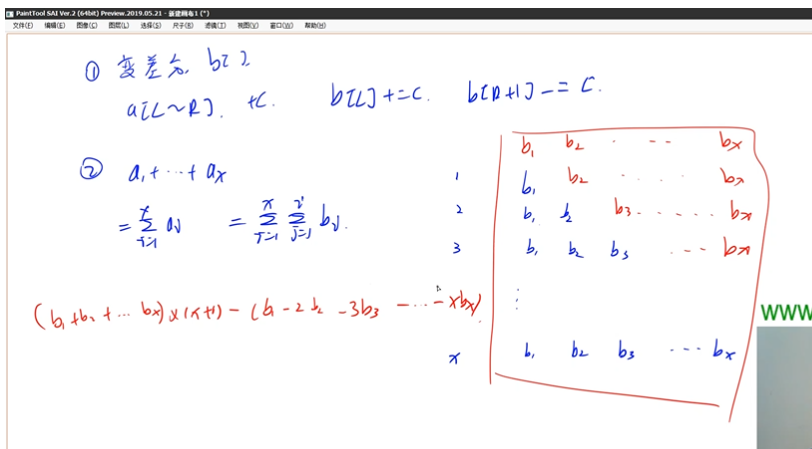 PaintTool SAI Ver.2 (64bit) Preview.2019.05.21 - 新建画布1 (*)
文件(F) 编辑(E) 图像(C) 图层(L) 选择(S) 尺子(R) 滤镜(T) 视图(V) 窗口(W) 帮助(H)
① 变差分 b[ ]
a[L~R] +C. b[L]+=C. b[R+1]-=C.
② a₁+⋯+aₓ
= ∑ᵢ₌₁ˣ aᵢ = ∑ᵢ₌₁ˣ ∑ⱼ₌₁ⁱ bⱼ.
(b₁+b₂+⋯bₓ)×(x+1) - (b₁-2b₂-3b₃-⋯-xbₓ)
b₁ b₂ ⋯ bₓ
1 b₁ b₂ ⋯ bₓ
2 b₁ b₂ b₃ ⋯ bₓ
3 b₁ b₂ b₃ ⋯ bₓ
⋮
x b₁ b₂ b₃ ⋯ bₓ
WWW